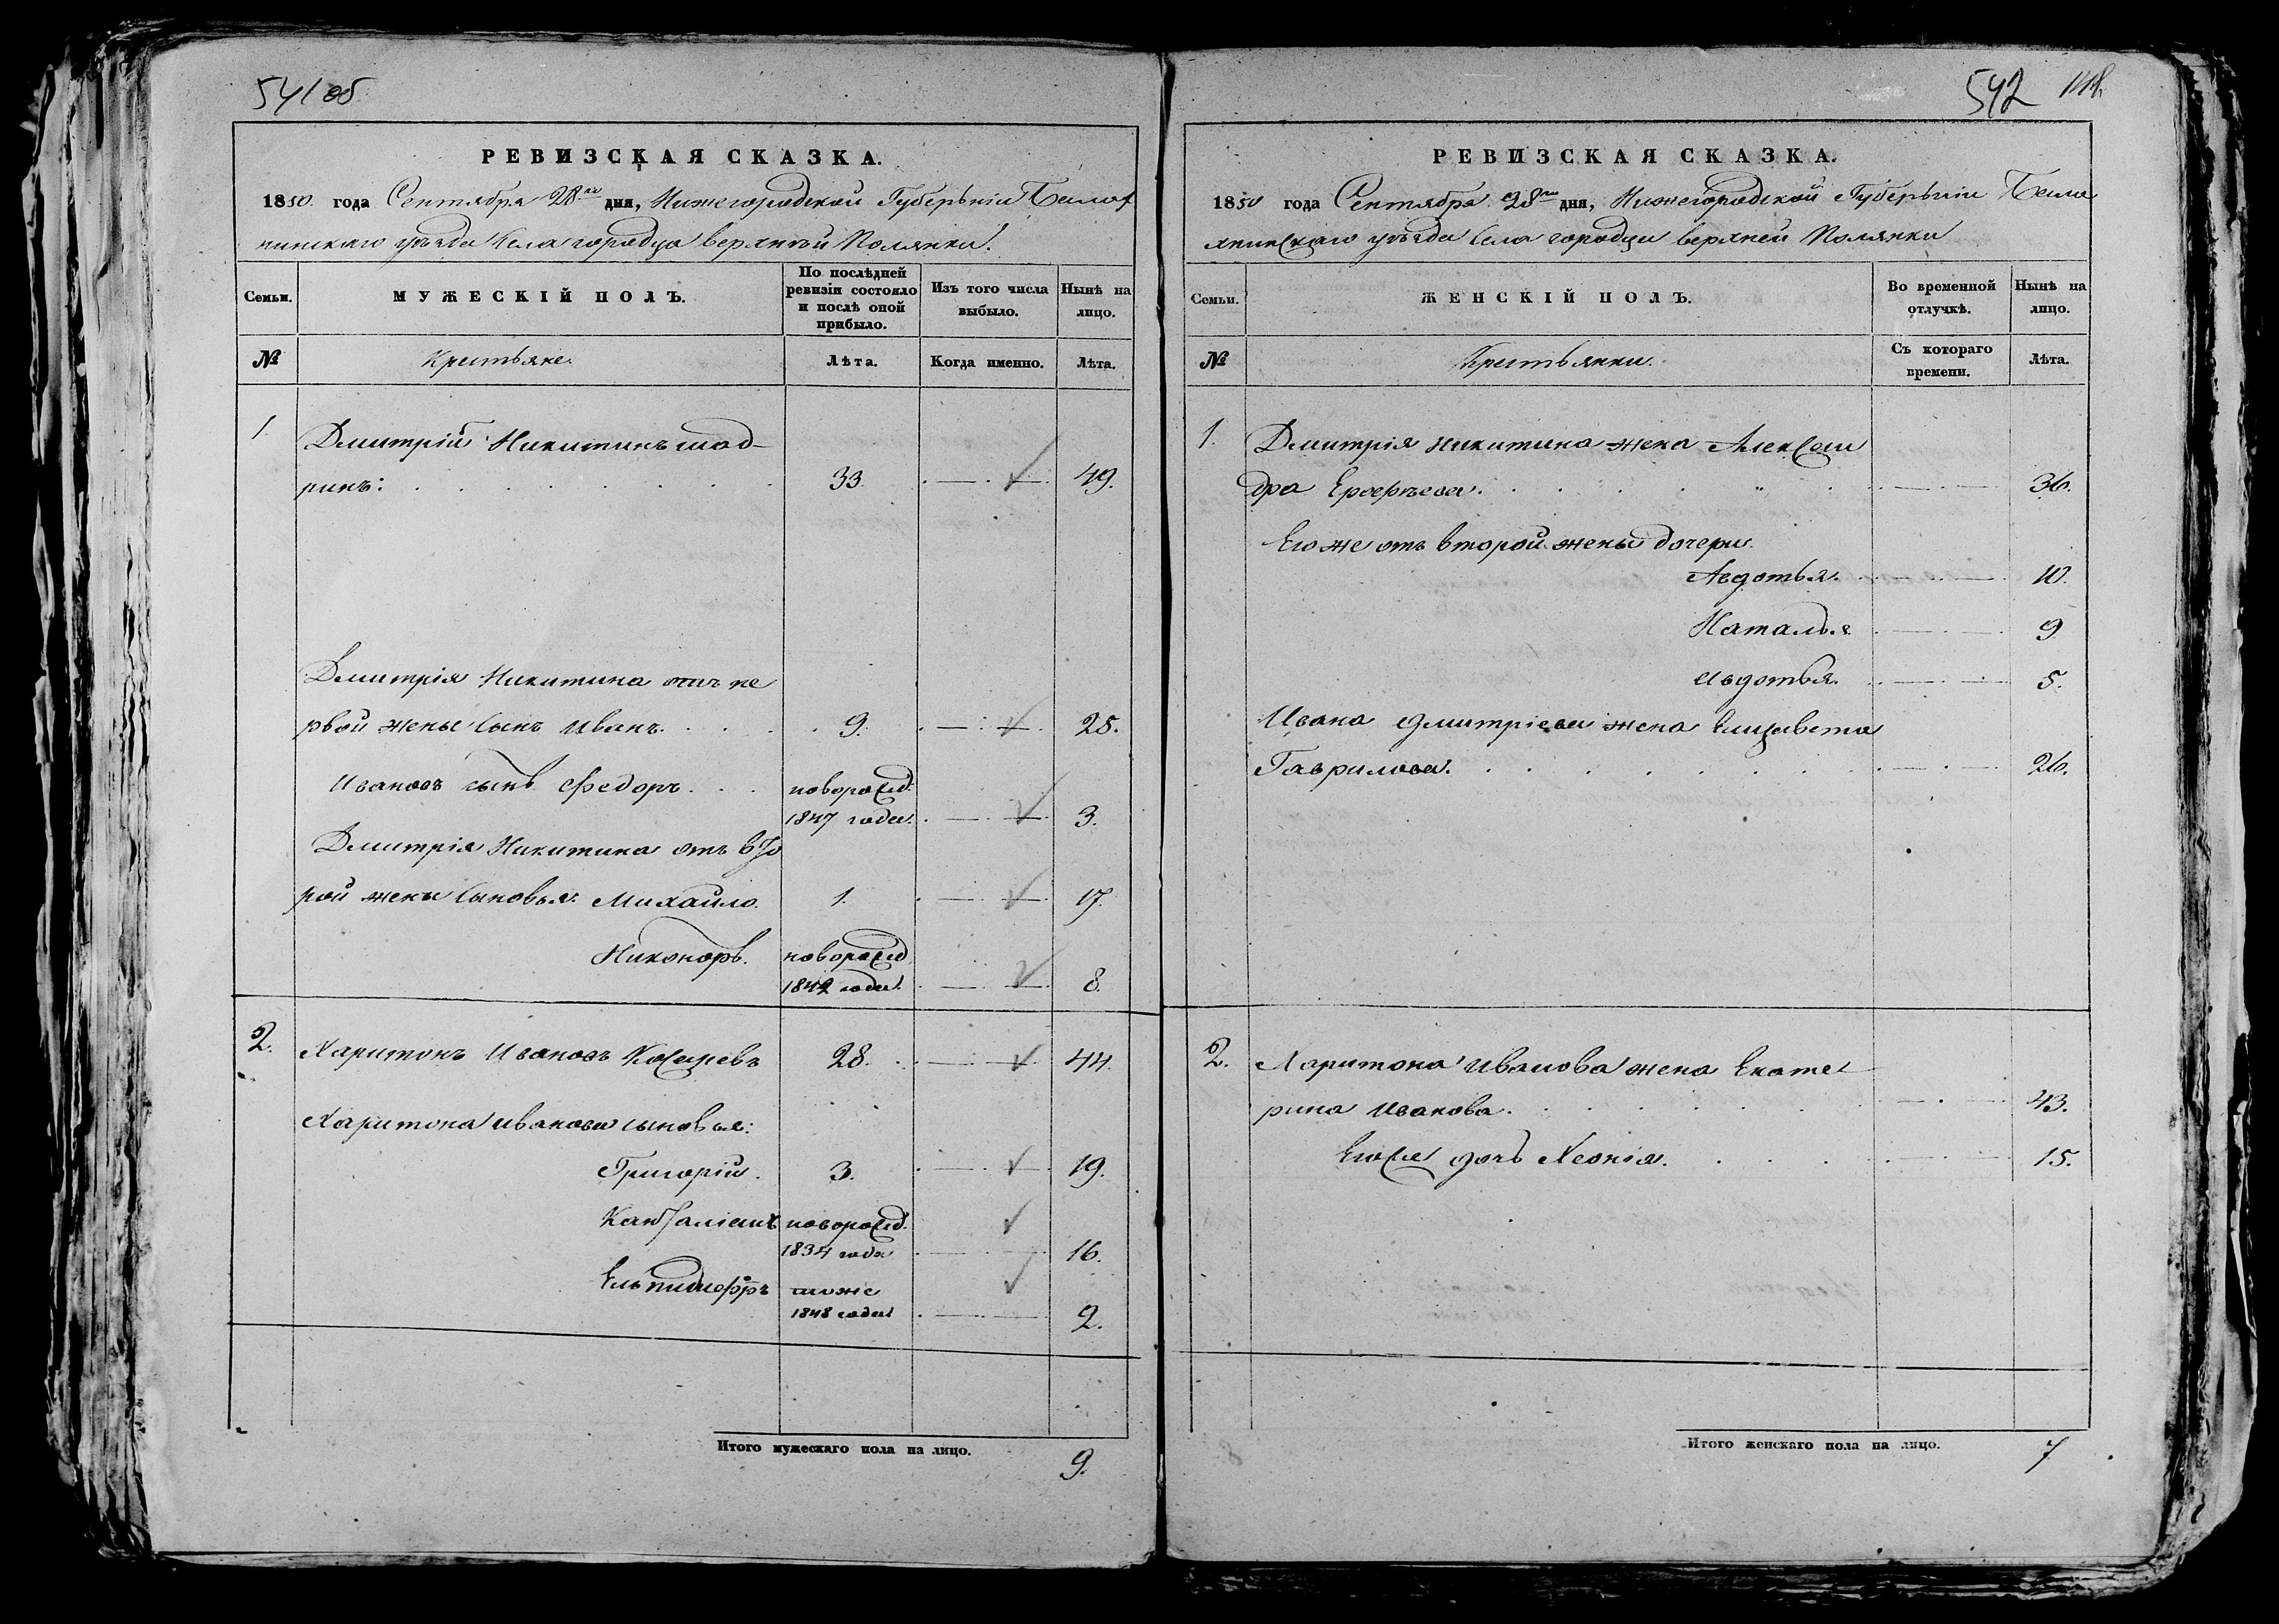 541 об
РЕВИЗСКАЯ СКАЗКА.
1850 года Сентября 28го дня, Нижегородской Губерніи Балах
нинскаго уѣзда Села городца верхнѣй Полянки.
Семьи.
МУЖЕСКІЙ ПОЛЪ.
По послѣдней
ревизіи состояло
и послѣ оной
прибыло.
Изъ того числа
выбыло.
Нынѣ на
лицо.
№
Крестьяне.
Лѣта.
Когда именно.
Лѣта.
1.
Дмитрій Никитинъ шад-
ринъ: 33. 49.
Дмитрія Никитина отъ пе
рвой жены Сынъ Иванъ. 9. 25.
Ивановъ сынъ Федоръ. новорожд.
1847 года. 3.
Дмитрія Никитина отъ вто
рой жены Сыновья: Михайло. 1. 17.
Никоноръ. новорожд
1842 года. 8.
2. Харитонъ Ивановъ 28. 44.
Харитона иванова сыновья:
Григорій. 3. 19.
новорожд.
1834 года 16.
Ельпидифоръ тоже
1848 года 2.
Итого мужескаго пола на лицо. 9.
542
РЕВИЗСКАЯ СКАЗКА.
1850 года Сентября 28го дня, Нижегородской Губерніи Бала
хнинскаго уѣзда Села городца верхней Полянки
Семьи.
ЖЕНСКІЙ ПОЛЪ.
Во временной
отлучкѣ.
Нынѣ на
лицо.
№
Крестьянки.
Съ котораго
времени.
Лѣта.
1. Дмитрія никитина жена Алексан
дра Ерофѣева. 36.
Его же отъ второй жены дочери
Авдотья. 10.
Наталья. 9
Авдотья. 5.
Ивана дмитріева жена Елизавета
Гаврилова. 26.
2. Харитона Иванова жена Екате
рина Иванова. 43.
Егоже дочь Хеонія. 15.
Итого женскаго пола на лицо. 7